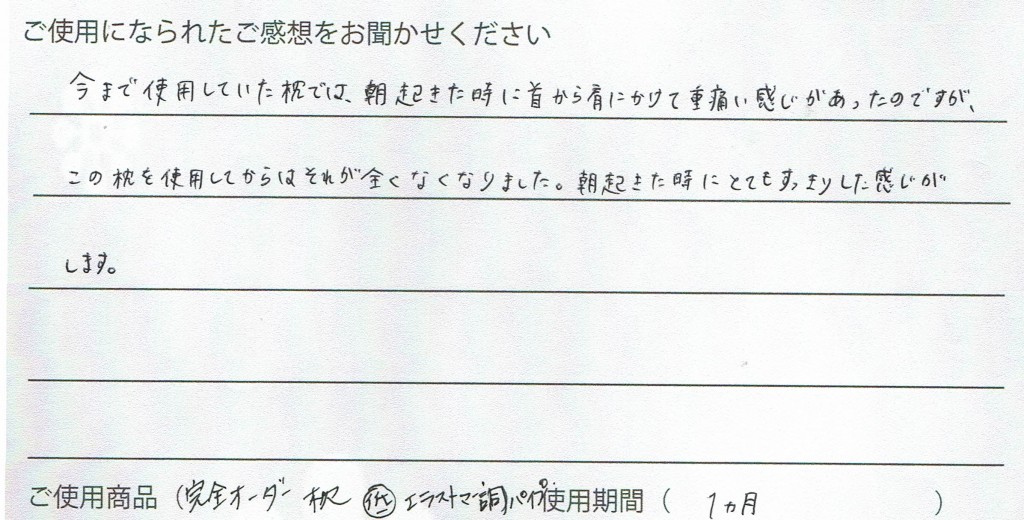 ご使用になられたご感想をお聞かせください
今まで使用していた枕では、朝起きた時に首から肩にかけて重痛い感じがあったのですが、
この枕を使用してからはそれが全くなくなりました。朝起きた時にとてもすっきりした感じが
します。
ご使用商品（完全オーダー枕 低 エラストマー調パイプ 使用期間（ 1ヵ月 ）